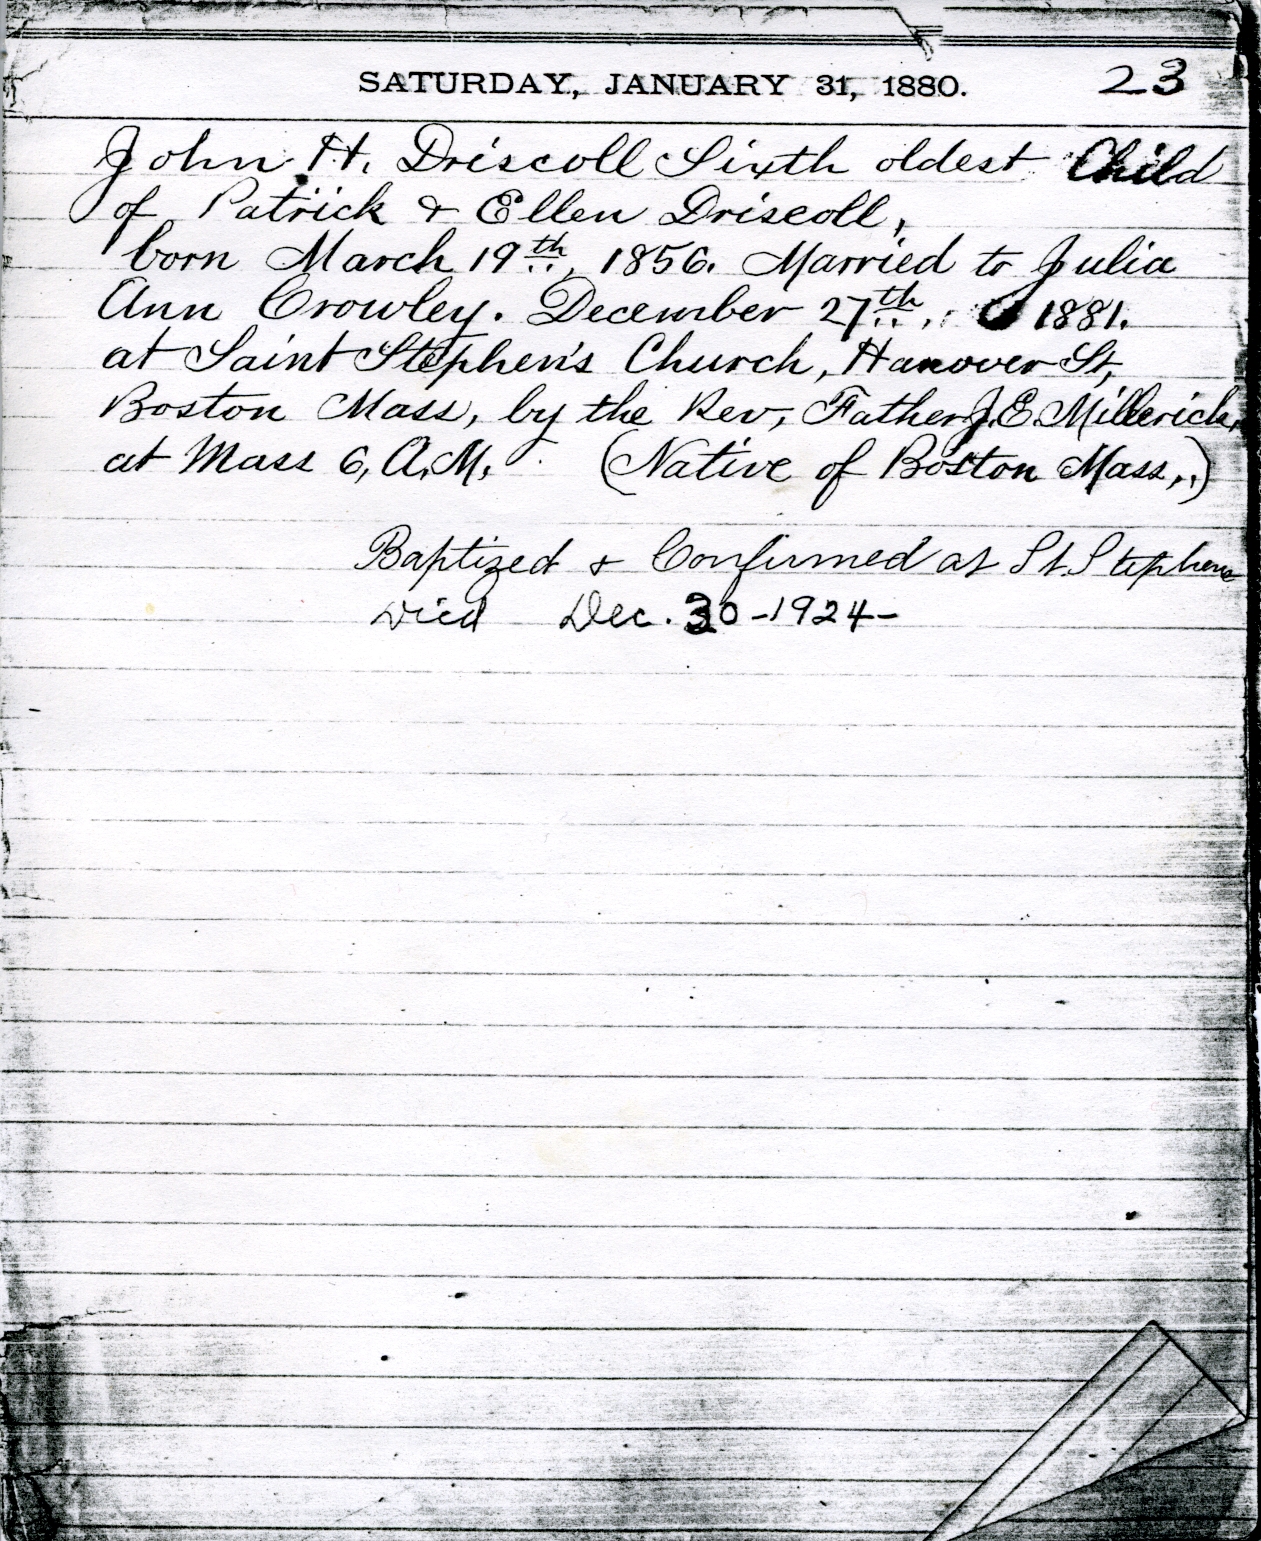 SATURDAY, JANUARY 31, 1880. 23
John H. Driscoll Sixth oldest Child
of Patrick & Ellen Driscoll,
born March 19th, 1856. Married to Julia
Ann Crowley. December 27th, 1881.
at Saint Stephen's Church, Hanover St,
Boston Mass, by the Rev, Father J. E. Millerick,
at Mass 6, A.M. (Native of Boston Mass,.)
Baptized & Confirmed at St. Stephens
Died Dec. 30-1924-